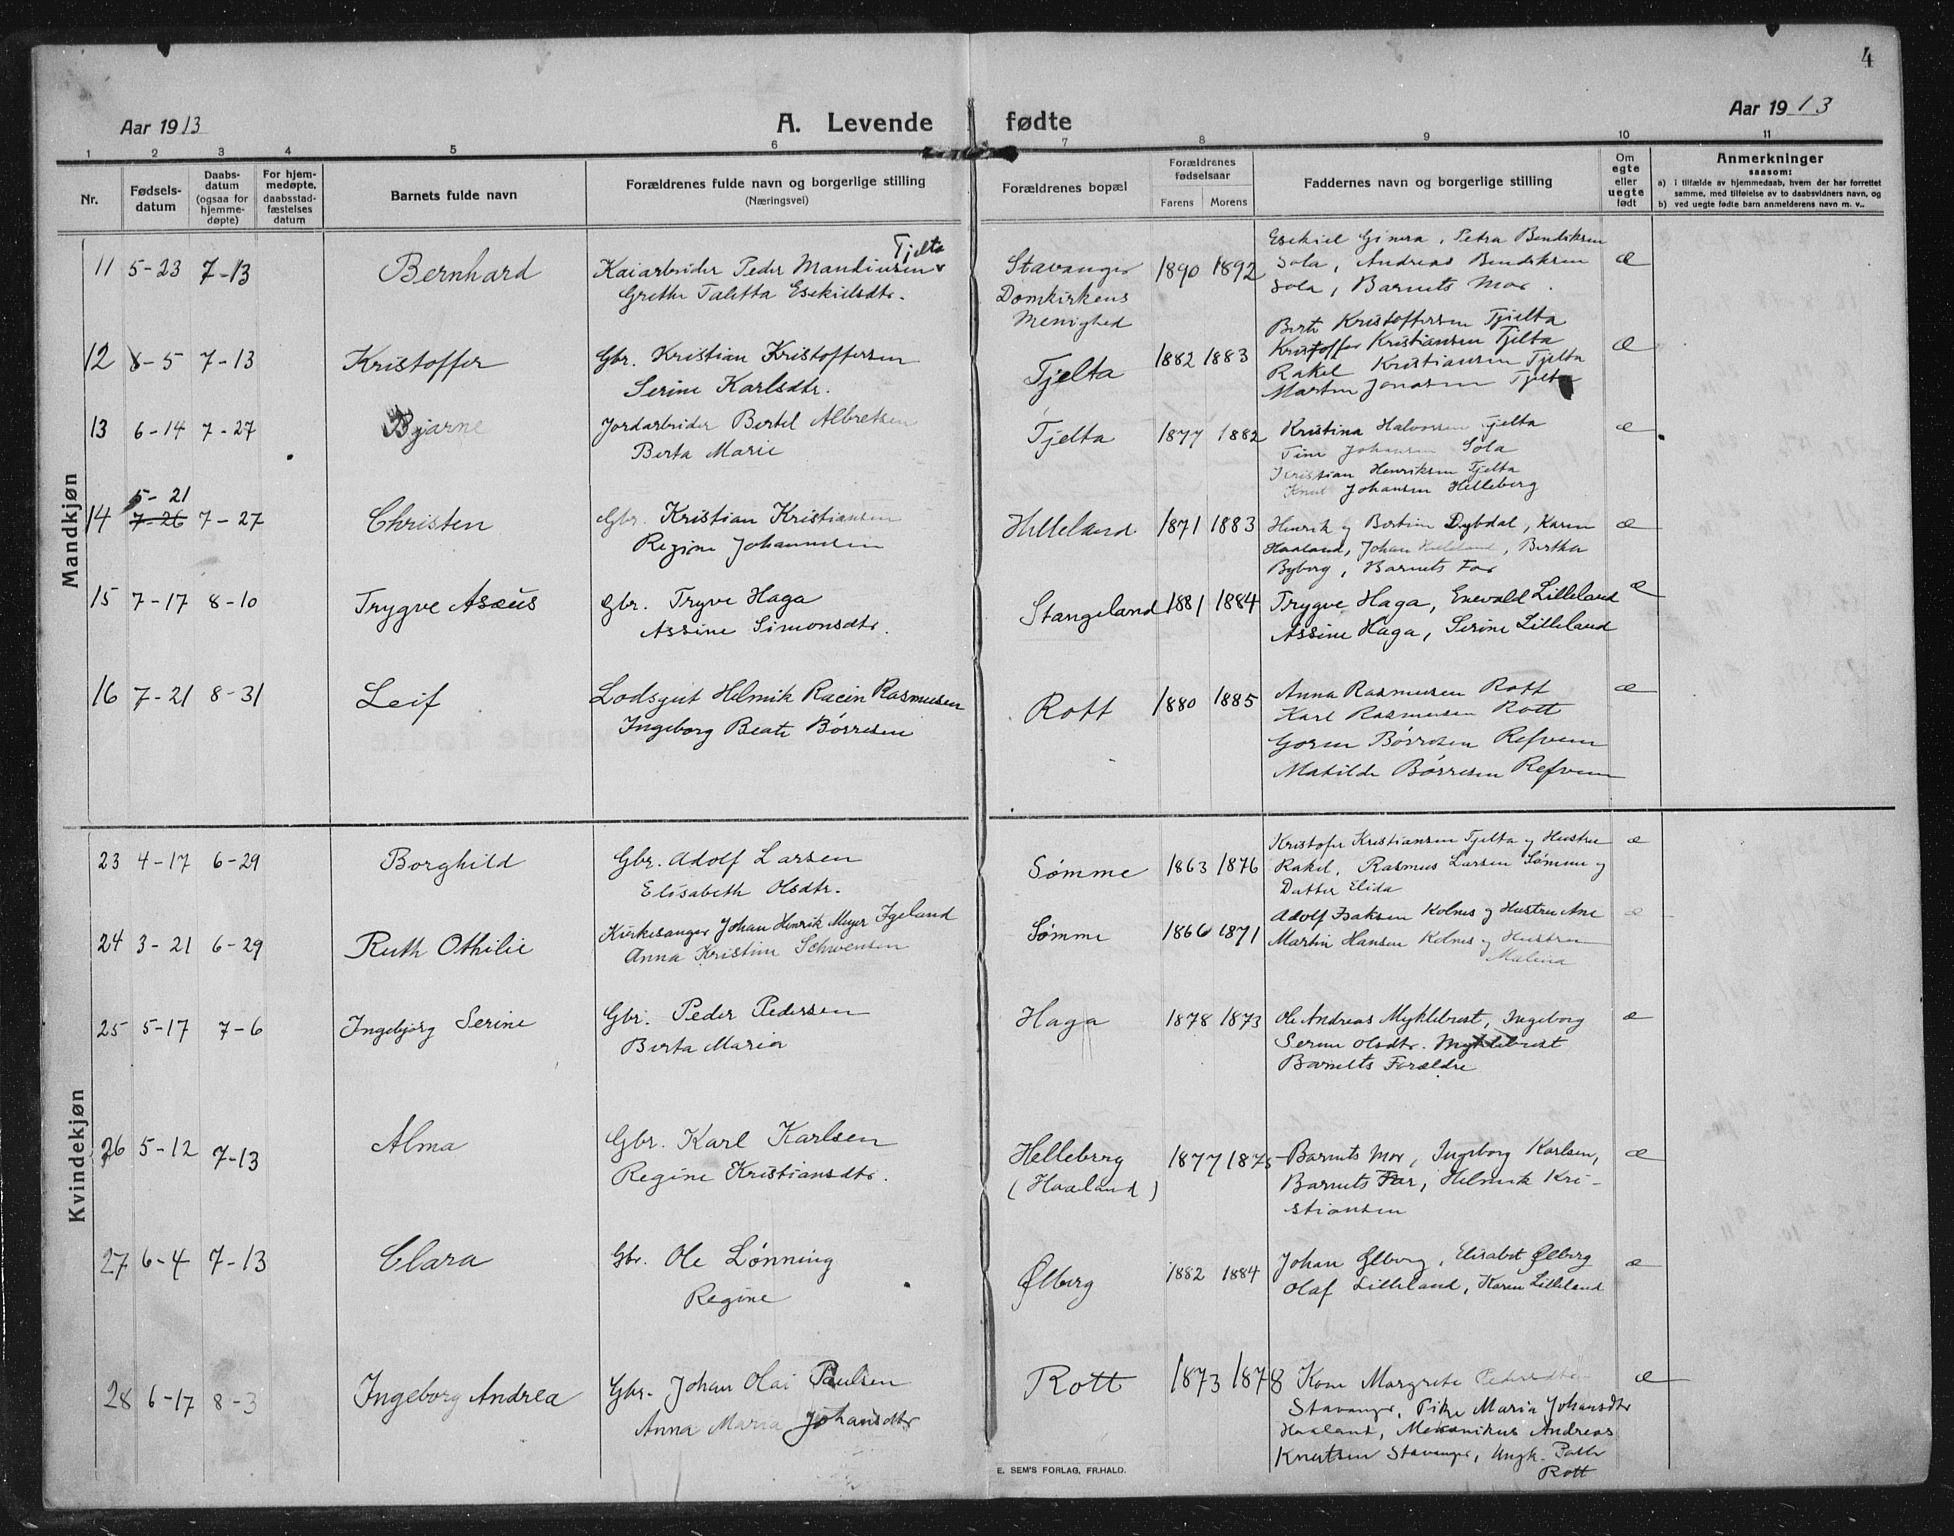 4
Aar 1913
A. Levende fødte
Aar 1913
1 2 3 4 5 6 7 8 9 10 11
Nr.
Fødsels-
datum
Daabs-
datum
(ogsaa for
hjemme-
døpte)
For hjem-
medøpte,
daabsstad-
fæstelses
datum
Barnets fulde navn
Forældrenes fulde navn og borgerlige stilling
(Næringsvei)
Forældrenes bopæl
Forældrenes
fødselsaar
Farens Morens
Faddernes navn og borgerlige stilling
Om
egte
eller
uegte
født
Anmerkninger
saasom:
a) i tilfælde av hjemmedaab, hvem der har forrettet
samme, med tilføielse av to daabsvidners navn, og
b) ved uegte fødte barn anmelderens navn m. v..
Mandkjøn
11 5-23 7-13 Bernhard
Kaiarbeider Peder Mandiusen Tjelta
Grethe Talitta Esekielsdtr.
Stavanger
Domkirkens
Menighed
1890 1892
Esekiel Gimra, Petra Bendiksen
Sola, Andreas Bendiksen
Sola, Barnets Mor.
æ
12 8-5 7-13 Kristoffer
Gbr. Kristian Kristoffersen
Serine Karlsdtr.
Tjelta
1882 1883
Berte Kristoffersen Tjelta
Kristoffer Kristiansen Tjelta
Rakel Kristiansen Tjelta
Martin Jonasen Tjelta
æ
13 6-14 7-27 Bjarne
Jordarbeider Bertel Albretsen
Berta Marie
Tjelta
1877 1882
Kristina Halvorsen Tjelta
Tine Johansen Sola
Kristian Henriksen Tjelta
Knut Johansen Helleberg
æ
5-21
14 7-26 7-27 Christen
Gbr. Kristian Kristiansen
Regine Johannesen
Helleland
1871 1883
Henrik og Bertine Dybdal, Karen
Haaland, Johan Helleland, Berthe
Byberg, Barnets Far
æ
15 7-17 8-10 Trygve Asæus
Gbr. Tryve Haga
Assine Simonsdtr.
Stangeland
1881 1884
Trygve Haga, Enevald Lilleland
Assine Haga, Serine Lilleland
æ
16 7-21 8-31 Leif
Lodsgut Helmik Racin Rasmusen
Ingeborg Beate Børresen
Rott
1880 1885
Anna Rasmusen Rott
Karl Rasmusen Rott
Goren Børresen Refveem
Matilde Børresen Refveem
æ
Kvindekjøn
23 4-17 6-29 Borghild
Gbr. Adolf Larsen
Elisabeth Olsdtr.
Sømme
1863 1876
Kristofer Kristiansen Tjelta og Hustru
Rakel, Rasmus Larsen Sømme og
Datter Elida
æ
24 3-21 6-29 Ruth Othilie
Kirkesanger Johan Henrik Meyer Igeland
Anna Kristine Schwensen
Sømme
1866 1871
Adolf Isaksen Kolnes og Hustru Ane
Martin Hansen Kolnes og Hustru
Malena
æ
25 5-17 7-6 Ingebjørg Serine
Gbr. Peder Pedersen
Berta Maria
Haga
1878 1873
Ole Andreas Myklebust, Ingeborg
Serine Olsdtr. Myklebust
Barnets Forældre
æ
26 5-12 7-13 Alma
Gbr. Karl Karlsen
Regine Kristiansdtr.
Helleberg
(Haaland)
1877 1875
Barnets Mor, Ingeborg Karlsen,
Barnets Far, Helmik Kri-
stiansen
æ
27 6-4 7-13 Clara
Gbr. Ole Lønning
Regine
Ølberg
1882 1884
Johan Ølberg, Elisabet Ølberg
Olaf Lilleland, Karen Lilleland
æ
28 6-17 8-3 Ingeborg Andrea
Gbr. Johan Olai Paulsen
Anna Maria Johansdtr
Rott
1873 1878
Kone Margrete
Stavanger, Pike Maria Johansdtr
Haaland, Mekanikus Andreas
Knutsen Stavanger, Ungk.
Rott
æ
E. SEM'S FORLAG, FR.HALD.